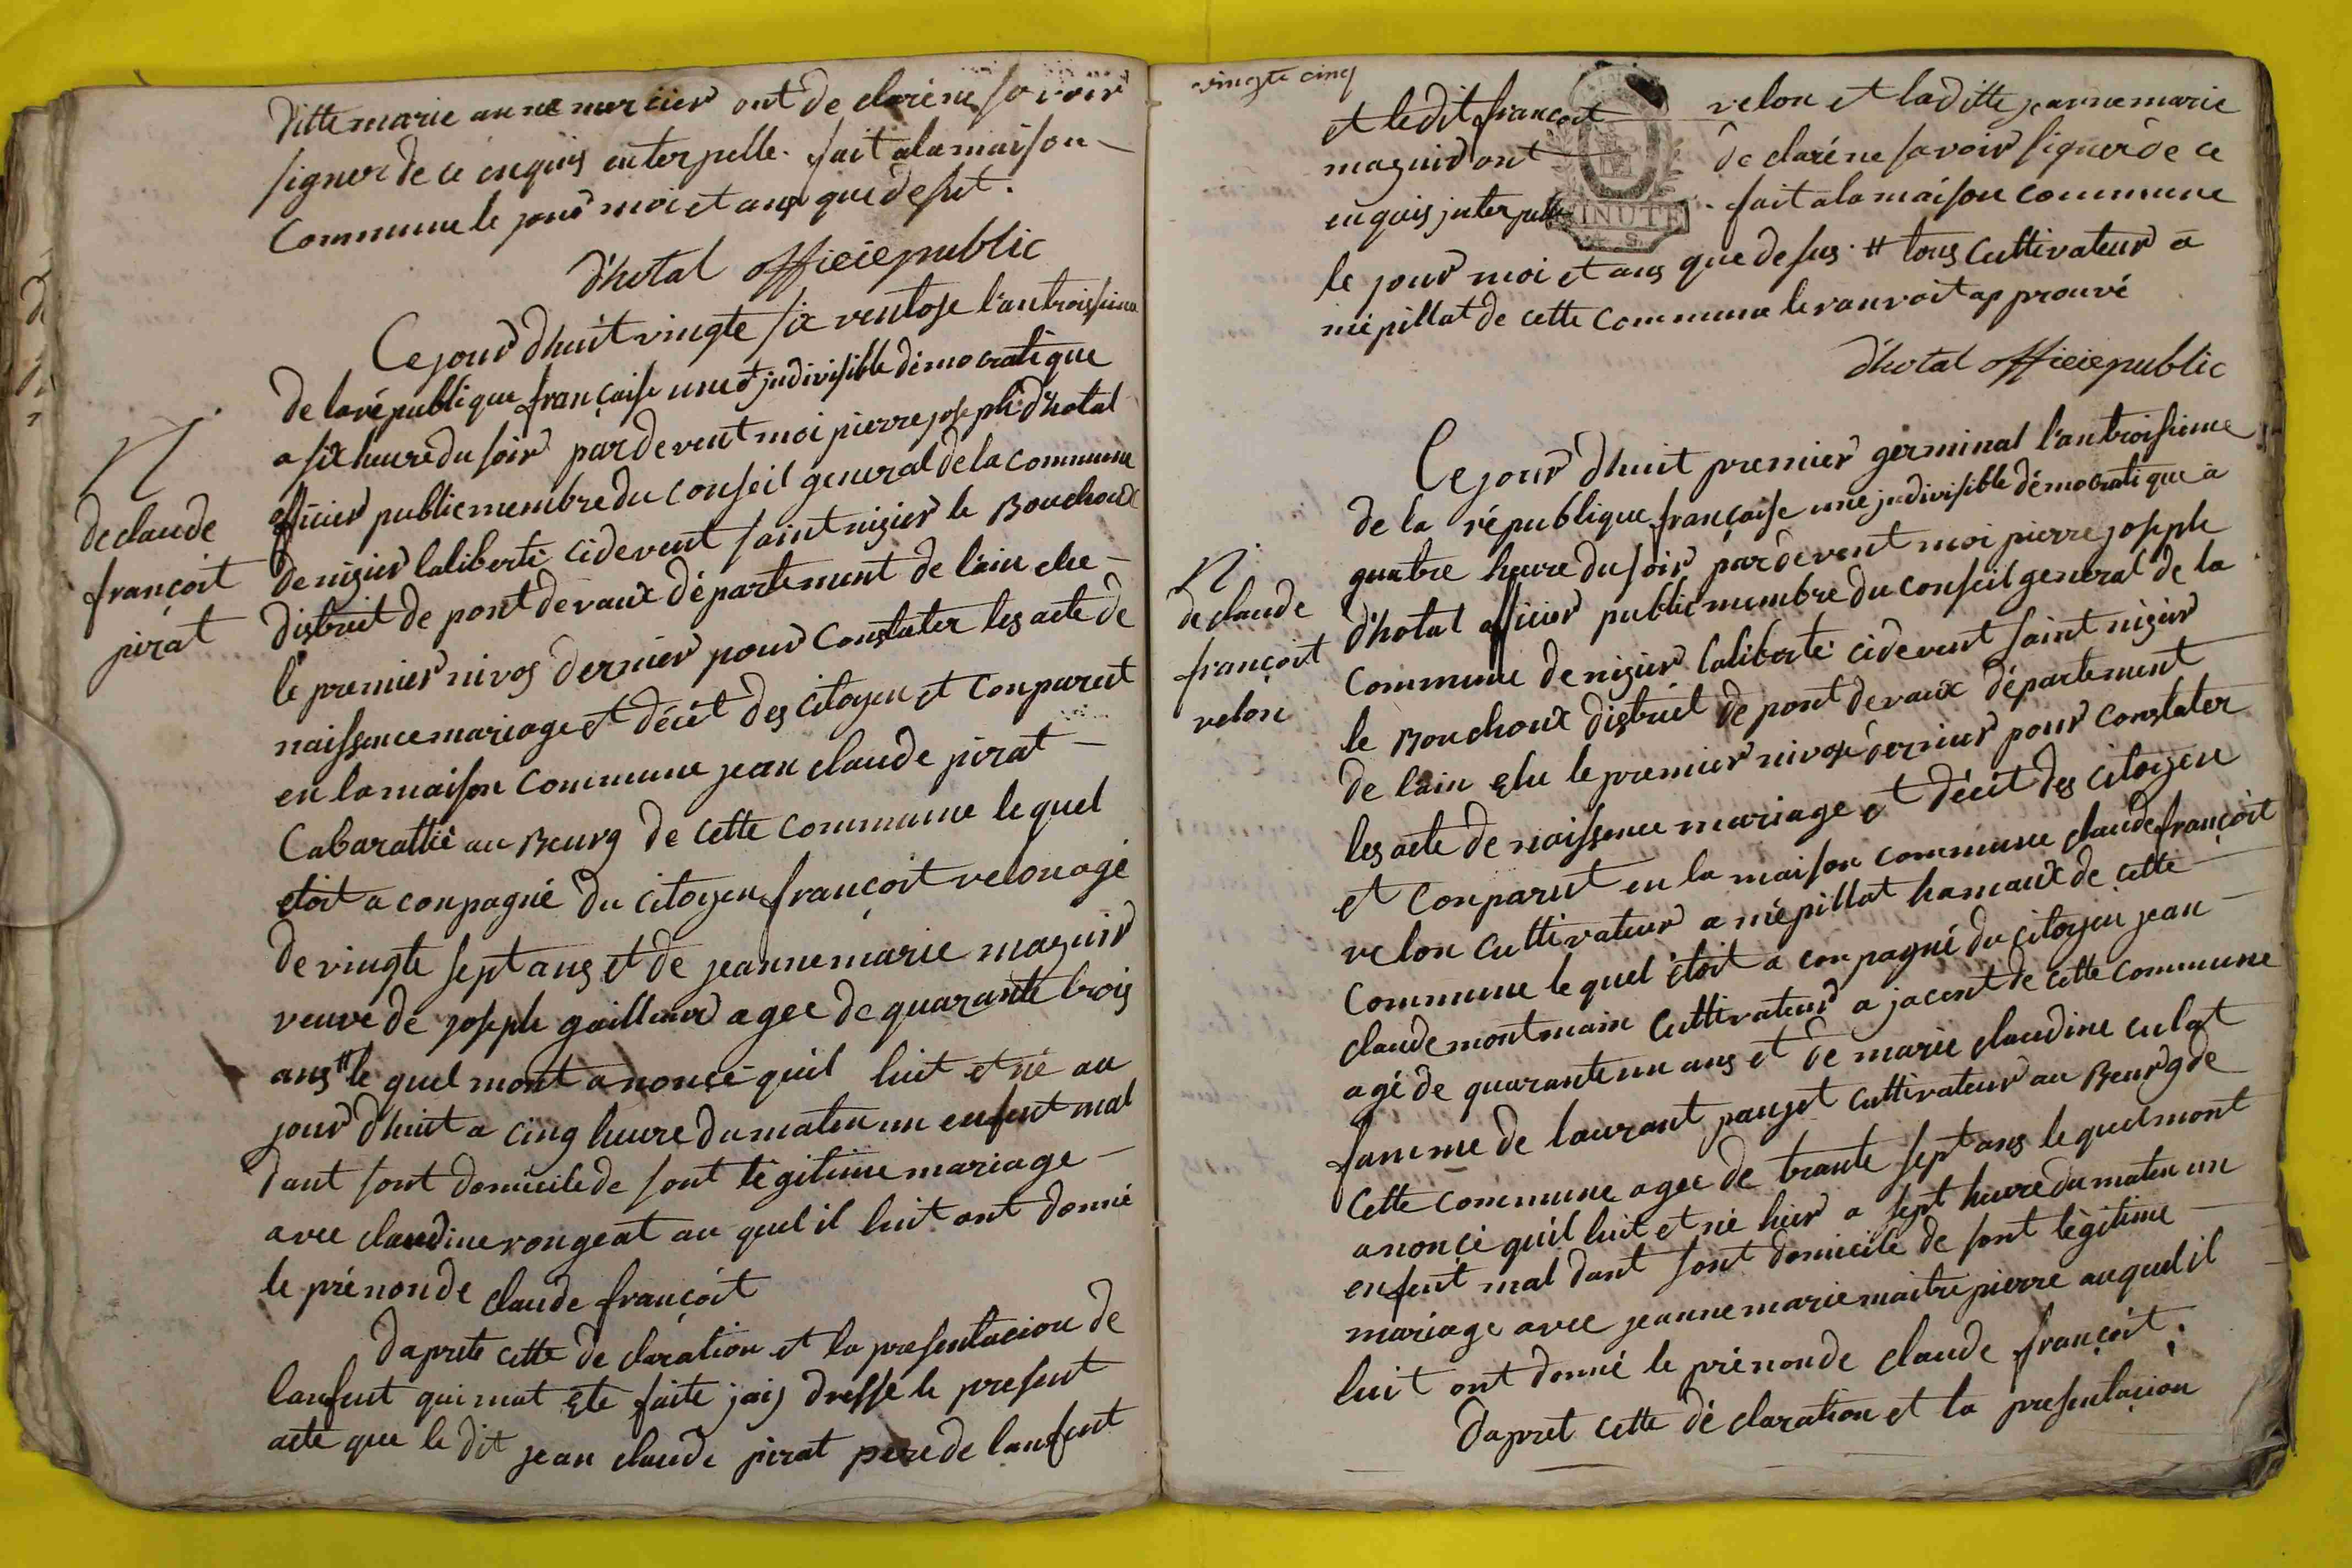 ditte marie anne mercier ont de claré ne savoir
signer de ce enquis enterpelle. fait a la maison
Commune le jour moi et ans que desut.
d'hotal officie public
Ce jour dhuit vingte six ventose l'an troissieme
de la république française une et jndivisible démocratique
a six heure du soir par de vent moi pierre joseph d'hotal
officier public membre du conseil general de la commune
de nizier laliberté cidevent saint nizier le Bouchoux
distruit de pont devaux département de l'ain elue
le premier nivos dernier pour Constater les acte de
naissance mariage et décét des citoyen et Conparut
en la maison Commune jean claude pirat
Cabarattié au Bourg de cette commune le quel
etoit a conpagné du citoyen françoit velon agé
de vingte sept ans et de jeanne marie mazuir
veuve de joseph gaillard agee de quarante trois
ans # le quel mont anoncé quil luit et né au
jour dhuit a cinq heure du matin un enfent mal
dant sont domicile de sont légitime mariage
avec claudine rongeat au quel il luit ont donné
le prénon de claude françoit
dapréte cette de claration et la presentacion de
lanfent qui mat ete faite jais dressé le present
acte que le dit jean claude pirat pere de lanfent
N
de claude
françoit
pirat
vingte cinq
et ledit françoit velon et laditte jeanne marie
mazuir ont de claré ne savoir signer de ce
enquis jnterpellé fait a la maison commune
MINUTE
4 S.
le jour moi et ans que desus. # tous Cultivateur a
mépillat de cette Commune le ranvoit approuvé
d'hotal officie public
Ce jour dhuit premier germinal l'an troisieme
de la république française une jndivisible démocratique a
quatre heure du soir par devent moi pierre joseph
d'hotal officier public membre du conseil general de la
commune de nizier laliberté cidevent saint nizier
le Bouchoux distruit de pont devaux département
de l'ain elu le premier nivose dernier pour constater
les acte de naissence mariage et décét des citoyen
et Conparut en la maison commune claude françoit
velon cultivateur a mépillat hamaux de cette
commune le quel étoit a conpagné du citoyen jean
claude montmain cultivateur a jacent de cette commune
agé de quarante un ans et de marie claudine culat
famme de laurant pauget cultivateur au Bourg de
cette commune agee de trante sept ans le quel mont
anoncé quil luit et né hier a sept heure du matin un
enfent mal dant sont domicile de sont légitime
mariage avec jeanne marie maitre pierre auquel il
luit ont donné le prénon de claude françoit.
dapret cette dé claration et la presentacion
N
de claude
françoit
velon